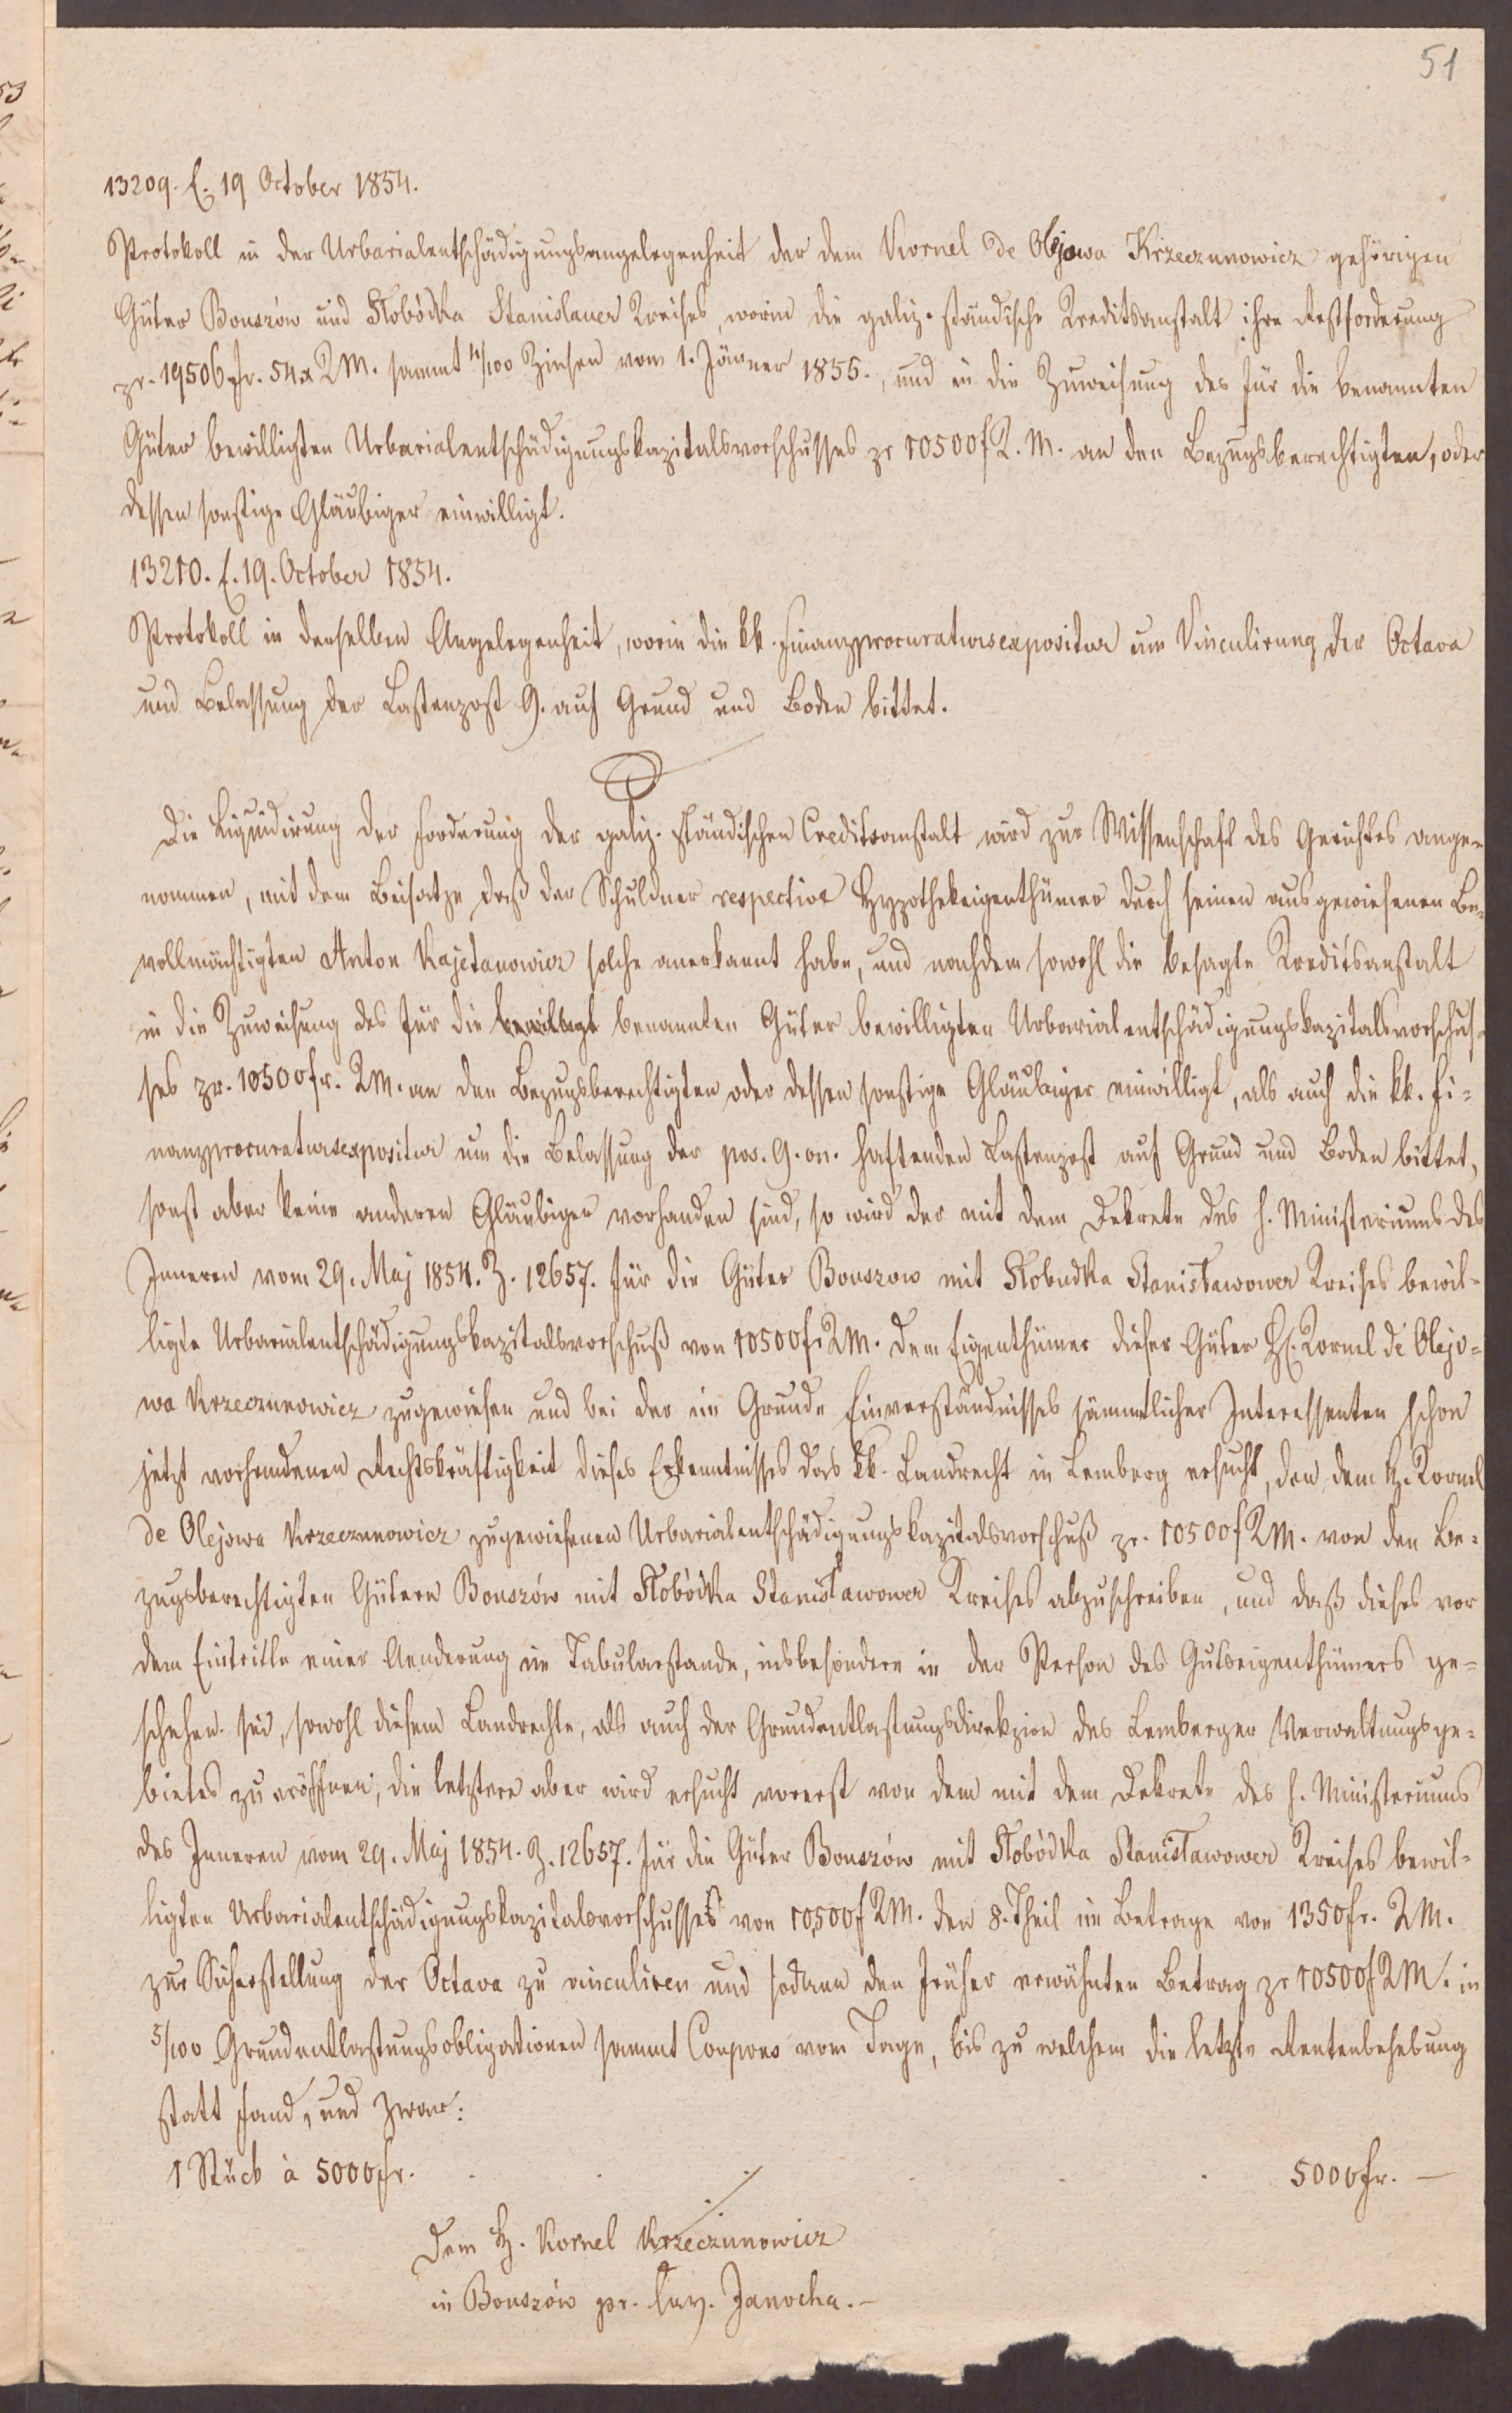 51
13209. E. 19 October 1854.
Protokoll in der Urbarialentschädigungsangelegenheit der dem Kornel de Olejowa Krzeczunowicz gehörigen
Güter Bouszów und Słobódka Stanislauer Kreises, worin die galiz. ständische Kreditsanstalt ihre Restforderung
pr. 19506 fr. 54 x KM. sammt 4/100 Zinsen vom 1. Jänner 1855., und in die Zuweisung des für die benannten
Güter bewilligten Urbarialentschädigungskapitalsvorschusses pr 10500 f K. M. an den Bezugsberechtigten, oder
dessen sonstige Gläubiger einwilligt.
13210. E. 19. October 1854.
Protokoll in derselben Angelegenheit, worin die kk. Finanzprocuratursexpositur um Vinculirung der Octava
und Belassung der Lastenpost 9. auf Grund und Boden bittet.
Die Liquidirung der Forderung der galiz. ständischen Creditsanstalt wird zur Wissenschaft des Gerichtes ange-
nommen, mit dem Beisatze daß der Schuldner respective Hypothekeigenthümer durch seinen ausgewiesenen Be-
vollmächtigten Anton Kajetanowicz solche anerkannt habe, und nachdem sowohl die besagte Kreditsanstalt
in die Zuweisung des für die bewilligt benannten Güter bewilligten Urbarialentschädigungskapitalsvorschus-
ses pr. 10500 fr. KM. an den Bezugsberechtigten oder dessen sonstige Gläubiger einwilligt, als auch die kk. Fi-
nanzprocuratursexpositur um die Belassung der pos. 9. on. haftenden Lastenpost auf Grund und Boden bittet,
sonst aber keine anderen Gläubiger vorhanden sind, so wird der mit dem Dekrete des h. Ministeriums des
Inneren vom 29. Maj 1854. Z. 12657. für die Güter Bouszow mit Słobudka Stanisławower Kreises bewil-
ligte Urbarialentschädigungskapitalsvorschuß von 10500 f KM. dem Eigenthümer dieser Güter H. Kornel de Olejo-
wa Krzeczunowicz zugewiesen und bei der im Grunde Einverständnisses sämmtlicher Interessenten schon
jetzt vorhandenen Rechtskräftigkeit dieses Erkenntnisses das kk. Landrecht in Lemberg ersucht, den dem H. Kornel
de Olejowa Krzeczunowicz zugewiesenen Urbarialentschädigungskapitalsvorschuß pr. 10500 f KM. von den Be-
zugsberechtigten Gütern Bouszów mit Słobódka Stanisławower Kreises abzuschreiben, und daß dieses vor
dem Eintritte einer Aenderung im Tabularstande, insbesondere in der Person des Gutseigenthümers ge-
schehen sei, sowohl diesem Landrechte, als auch der Grundentlastungsdirekzion des Lemberger Verwaltungsge-
bietes zu eröffnen; die letztere aber wird ersucht vorerst von dem mit dem Dekrete des h. Ministeriums
des Inneren vom 29. Maj 1854. Z. 12657. für die Güter Bouszów mit Słobódka Stanisławower Kreises bewil-
ligten Urbarialentschädigungskapitalsvorschusses von 10,500 f KM. den 8. Theil im Betrage von 1350 fr. KM.
zur Sicherstellung der Octava zu vinculiren und sodann den früher erwähnten Betrag pr 10500 f KM. in
5/100 Grundentlastungsobligationen sammt Coupons vom Tage, bis zu welchem die letzte Rentenbehebung
statt fand, und zwar:
1 Stück à 5000 fr. . . . . . . 5000 fr. —
Dem H. Kornel Krzeczunowicz
in Bouszów pr. Janocha. —